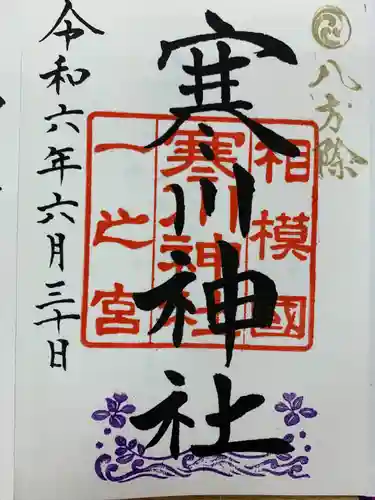 八方除
寒川神社
相模國
寒川神社
一之宮
令和六年六月三十日